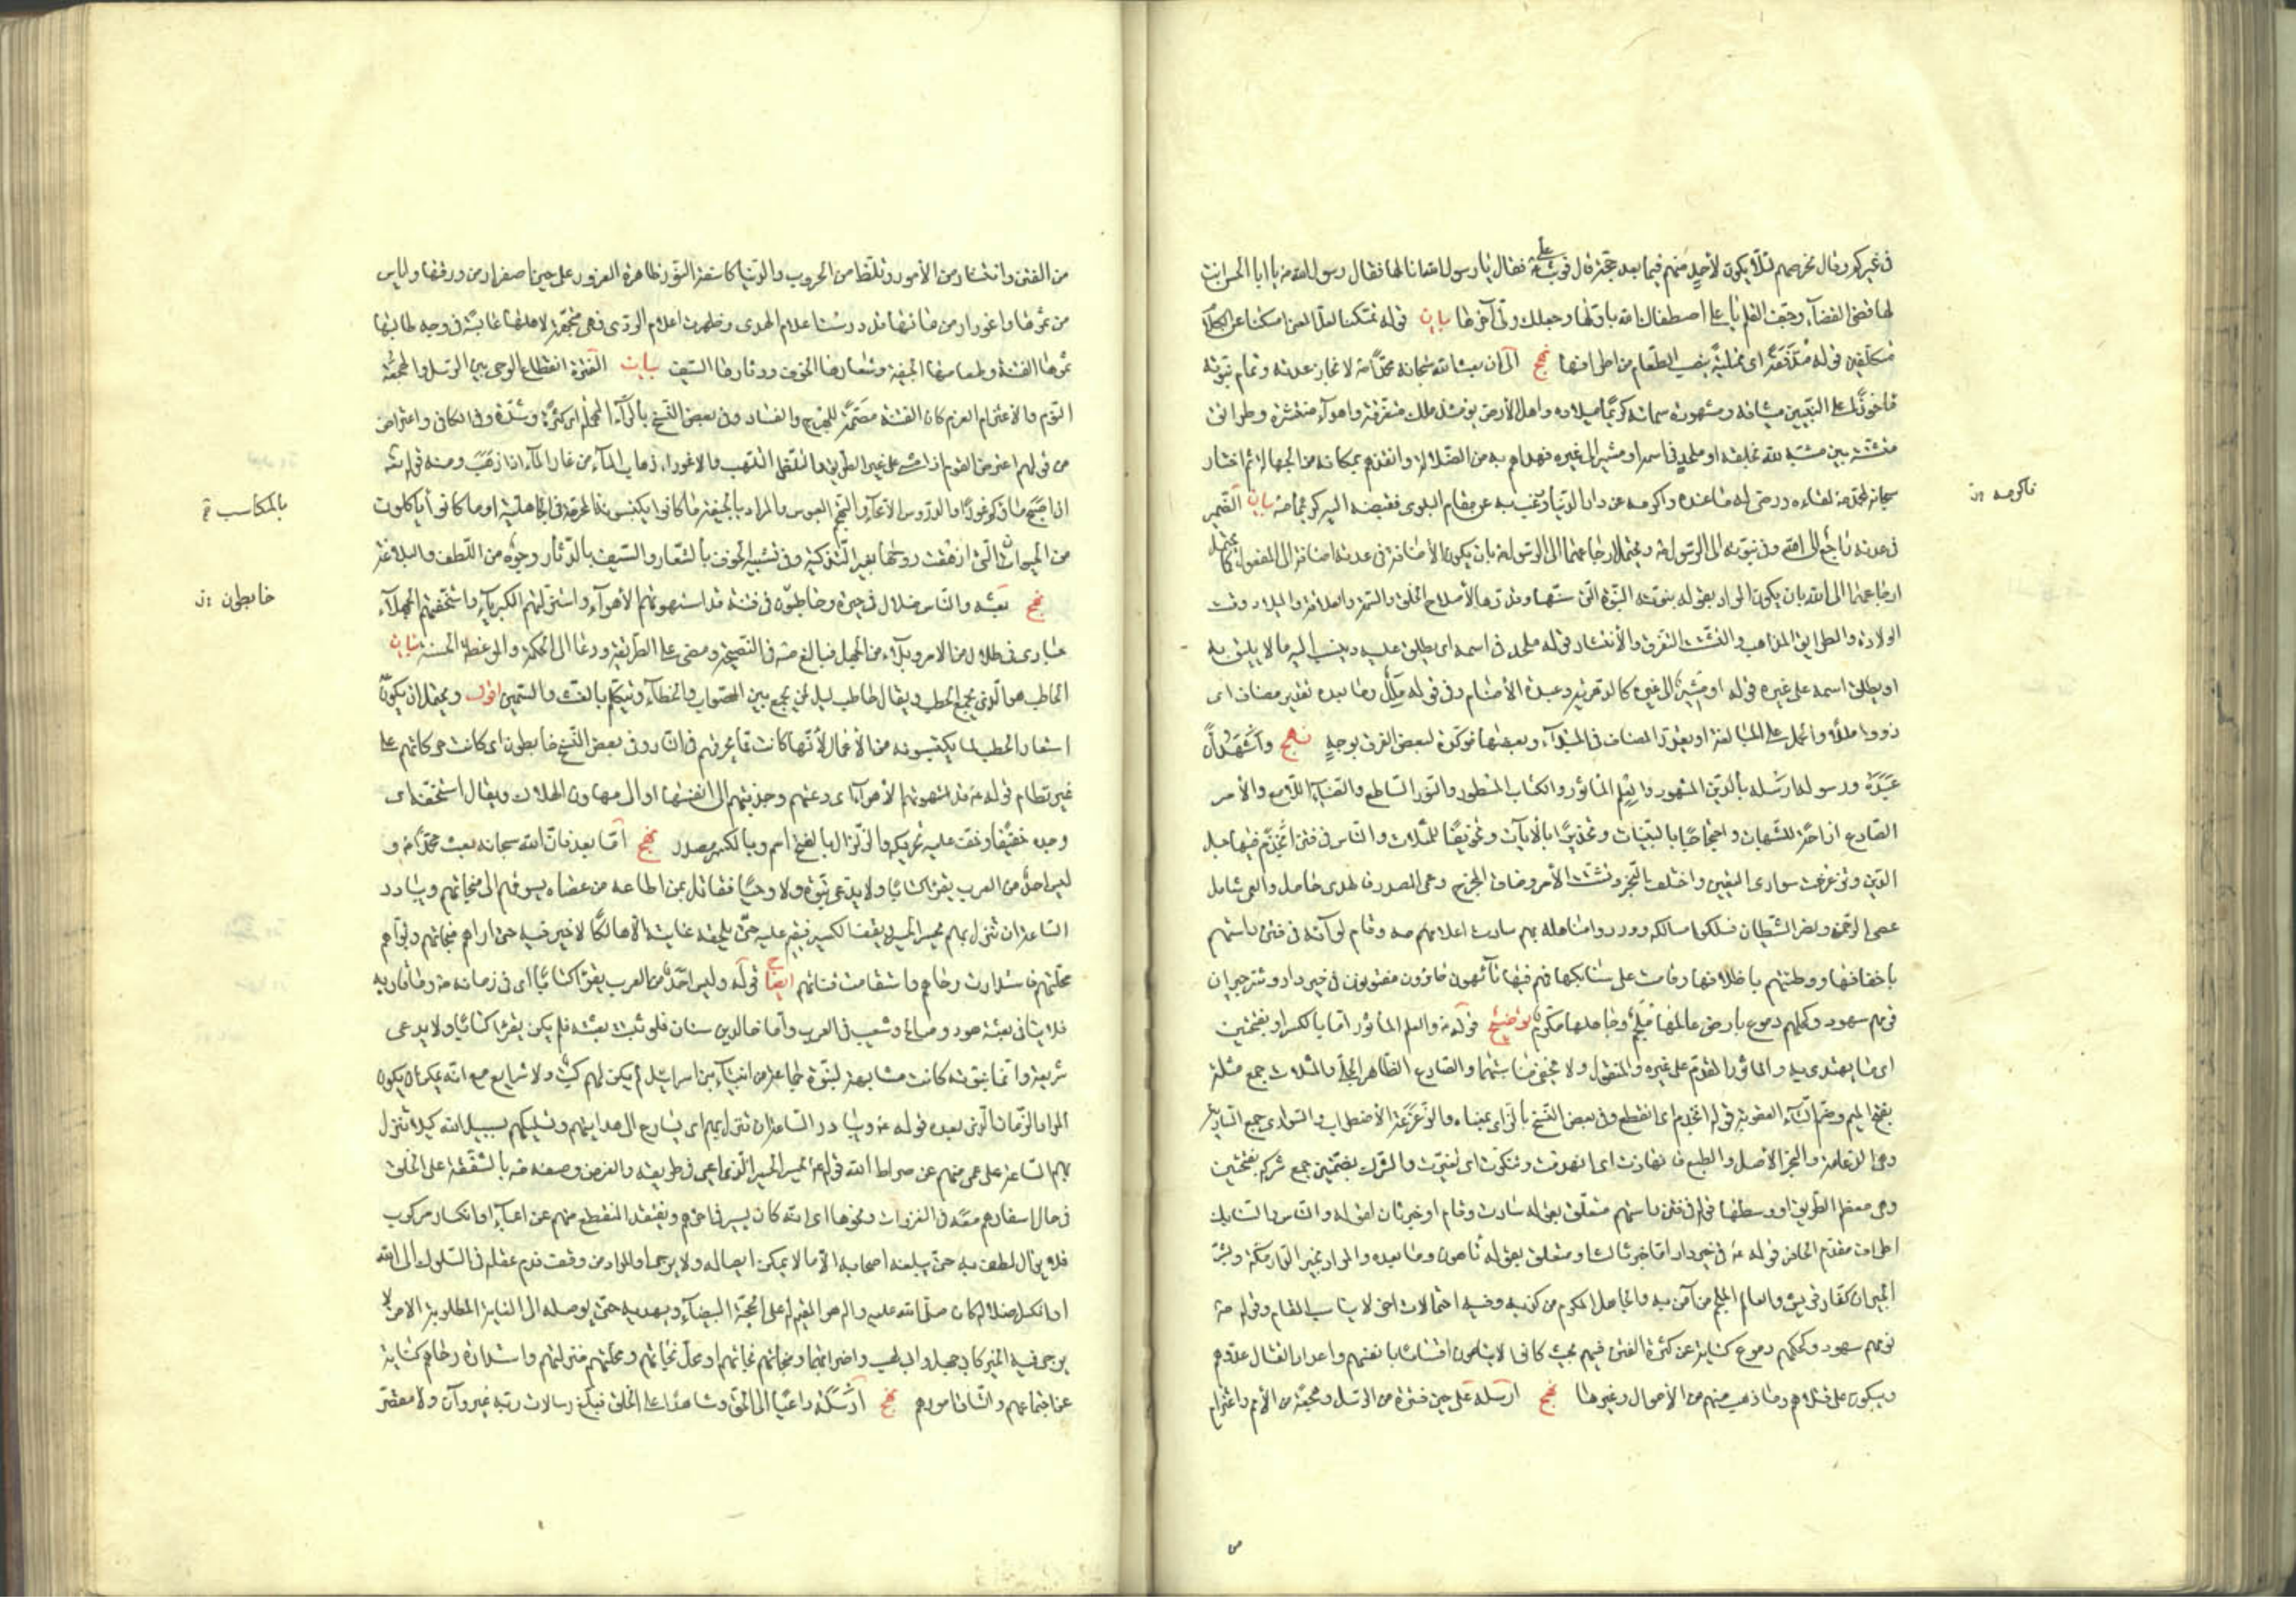 في غيركم وقال نخرجهم لئلا يكون لأحد منهم فيما بعد حجة قال فوثب علي فقال يا رسول الله انا لها فقال رسول الله ص يا ابا الحسن انت
لها قضي القضاء وجف القلم يا علي اصطفاك الله باولها وجعلك ولي آخرها بيان قوله
متكلفين قوله اي ممتلية الطعام من اطرافها نهج الى ان بعث الله سبحانه محمدا ص لانجاز عدته وتمام نبوته
مأخوذا على النبيين ميثاقه ومشهورة سماته كريما ميلاده واهل الأرض يومئذ ملل متفرقة واهواء منتشرة وطرائق
متشتتة بين مشبه لله بخلقه او ملحد في اسمه او مشير الى غيره فهداهم به من الضلالة وانقذهم بمكانه من الجهالة ثم اختار
سبحانه لمحمد ص لقاءه ورضي له ما عنده واكرمه عن دار الدنيا ورغب به عن مقام البلوى فقبضه اليه كريما ص بيان الضمير
فاكرمه ن
في عدته راجع الى الله وفي نبوته الى الرسول ص ويحتمل ارجاعهما الى الرسول ص بان يكون الأضافة في عدته اضافة الى المفعول كما يحتمل
ارجاعهما الى الله بان يكون المراد بقوله بنبوته النبوة التي سنها وقدرها لأصلاح الخلق والسمة العلامة والميلاد وقت
الولادة والطرايق المذاهب والتشتت التفرق والأنتشار قوله ملحد في اسمه اي يطلق عليه وينسب اليه ما لا يليق به
او يطلق اسمه على غيره قوله او مشير الى غيره كالدهرية وعبدة الأصنام وفي قوله ملل وما بعده تقدير مضاف اي
ذووا ملل والحمل على المبالغة او يقدر المضاف في المبتداء وبعضها مؤكدة لبعض الفرق بوجه نهج وأشهد أن
عبده ورسوله ارسله بالدين المشهور والعلم المأثور والكتاب المسطور والنور الساطع والضياء اللامع والأمر
الصادع ازاحة للشبهات واحتجاجا بالبينات وتحذيرا بالأيات وتخويفا للمثلات والناس في فتن انجذم فيها حبل
الدين وتزعزعت سواري اليقين واختلف النجر وتشتت الأمر وضاق المخرج وعمي المصدر فالهدى خامل والعمى شامل
عصي الرحمن ونصر الشيطان فسلكوا مسالكه ووردوا مناهله بهم سارت اعلامهم وقام لواءه في فتن داستهم
باخفافها ووطئتهم باظلافها وقامت على سنابكها فهم فيها تائهون حائرون مفتونون في خير دار وشر جيران
نومهم سهود وكحلهم دموع بارض عالمها ملجم وجاهلها مكرم توضيح قوله والعلم المأثور اما بالكسر او بفتحتين
اي ما يهتدى به والمأثور المقدم على غيره والمنقول ولا يخفى مناسبتهما والصادع الظاهر الجلي والمثلات جمع مثلة
بفتح الميم وضم الثاء العقوبة قوله انجذم اي انقطع وفي بعض النسخ بالزاي بمعناه والزعزعة الأضطراب والسواري جمع السارية
وهي الدعامة والنجر الأصل والطبع فانهارت اي انهدمت وتنكرت اي تغيرت والشرك بضمتين جمع شركة بفتحتين
وهي معظم الطريق او وسطها قوله في فتن داستهم متعلق بقوله سارت وقام او خبر ثان لقوله والناس والسنابك
اطراف مقدم الحافر قوله ع في خير دار اما خبر ثالث او متعلق بقوله تائهون وما بعده والمراد بخير الدار مكة وبشر
الجيران كفار قريش والعالم الملجم من آمن به والجاهل المكرم من كذبه وفيه احتمالات اخر لا يناسب المقام وقوله
نومهم سهود وكحلهم دموع كناية عن كثرة الفتن فيهم بحيث كانوا لا ينامون اهتماما بانفسهم واعدادا لقتال عدوهم
ويبكون على قتلاهم وما ذهب منهم من الأموال وغيرها نهج ارسله على حين فترة من الرسل وهجعة من الأمم واعتزام
من
من الفتن وانتشار من الأمور وتلظ من الحروب والدنيا كاسفة النور ظاهرة الغرور على حين اصفرار من ورقها واياس
من ثمرها واغورار من مائها قد درست اعلام الهدى وظهرت اعلام الردى فهي متجهمة لاهلها عابسة في وجه طالبها
ثمرها الفتنة وطعامها الجيفة وشعارها الخوف ودثارها السيف بيان الفترة انقطاع الوحي بين الرسل والهجعة
النوم والاعتزام العزم كان الفتنة مصممة للهرج والفساد وفي بعض النسخ بالراء المهملة اي كثرة وشدة وفي الكافي واعتراض
من قولهم اعترض الفرس اذا مشى على غير الطريق والتلظي التلهب والاغورار ذهاب الماء من غار الماء اذا ذهب ومنه قوله تعالى
ان اصبح ماؤكم غورا والدروس الأمحاء والتجهم العبوس والمراد بالجيفة ما كانوا يكتسبونه بالمحرمة في الجاهلية او ما كانوا يأكلون
بالمكاسب
من الحيوان التي ازهقت روحها بغير التذكية وفي تشبيه الخوف بالشعار والسيف بالدثار وجوه من اللطف والبلاغة
نهج بعثه والناس ضلال في حيرة وحاطبون في فتنة قد استهوتهم الأهواء واستزلتهم الكبرياء واستخفتهم الجهلاء
خابطون ن
حيارى في زلزال من الأمر وبلاء من الجهل فبالغ ص في النصيحة ومضى على الطريقة ودعا الى الحكمة والموعظة الحسنة بيان
الحاطب هو الذي يجمع الحطب ويقال حاطب ليل لمن يجمع بين الصواب والخطاء ويتكلم بالغث والسمين اقول ويحتمل ان يكون
استعار الحطب لما يكتسبونه من الأعمال لأنها كانت مما يحرقهم في النار وفي بعض النسخ خابطون اي كانت حركاتهم على
غير نظام قوله ع قد استهوتهم الأهواء اي دعتهم وجذبتهم الى انفسها او الى مهاوي الهلاك ويقال استخفه اي
وجده خفيفا وخف عليه تحريكه والزلزال بالفتح اسم وبالكسر مصدر نهج اما بعد فان الله سبحانه بعث محمدا ص و
ليس احد من العرب يقرأ كتابا ولا يدعي نبوة ولا وحيا فقاتل بمن اطاعه من عصاه يسوقهم الى منجاتهم ويبادر
الساعة ان تنزل بهم يحسر الحسير ويقف الكسير فيقيم عليه حتى يلحقه غايته الا هالكا لا خير فيه حتى اراهم منجاتهم وبوأهم
محلتهم فاستدارت رحاهم واستقامت قناتهم ايضاح قوله وليس احد من العرب يقرأ كتابا اي في زمانه ص وما قاربه
فلا ينافي بعثة هود وصالح وشعيب في العرب واما خالد بن سنان فلو ثبت بعثته فلم يكن يقرأ كتابا ولا يدعي
شريعة وانما نبوته كانت مشابهة لنبوة جماعة من انبياء بني اسرائيل لم يكن لهم كتب ولا شرايع مع انه يمكن ان يكون
المراد الزمان الذي بعده قوله ع ويبادر الساعة ان تنزل بهم اي يسارع الى هدايتهم وتسليكهم لسبيل الله كيلا تنزل
بهم الساعة على عمى منهم عن صراط الله قوله ع يحسر الحسير الذي اعيى في طريقه والغرض وصفه ص بالشفقة على الخلق
في حال اسفارهم معه في الغزوات ونحوها اي انه كان يسير في آخرهم ويفتقد المنقطع منهم عن اعياء او انكسار مركوب
فلا يزال يلطف به حتى يبلغه اصحابه الا ما لا يمكن ايصاله ولا يرجى او المراد من وقفت قدم عقله في السلوك الى الله
او انكسر لضلاله كان صلى الله عليه واله هو المقيم له على المحجة البيضاء ويهديه حتى يوصله الى الغاية المطلوبة الا من لا
يرجى فيه الخير كابي جهل وابي لهب واضرابهما ومنجاتهم نجاتهم او محل نجاتهم ومحلتهم منزلتهم واستدارة رحاهم كناية
عن اجتماعهم واتساق امورهم نهج ارسله داعيا الى الحق وشاهدا على الخلق فبلغ رسالات ربه غير وان ولا مقصر